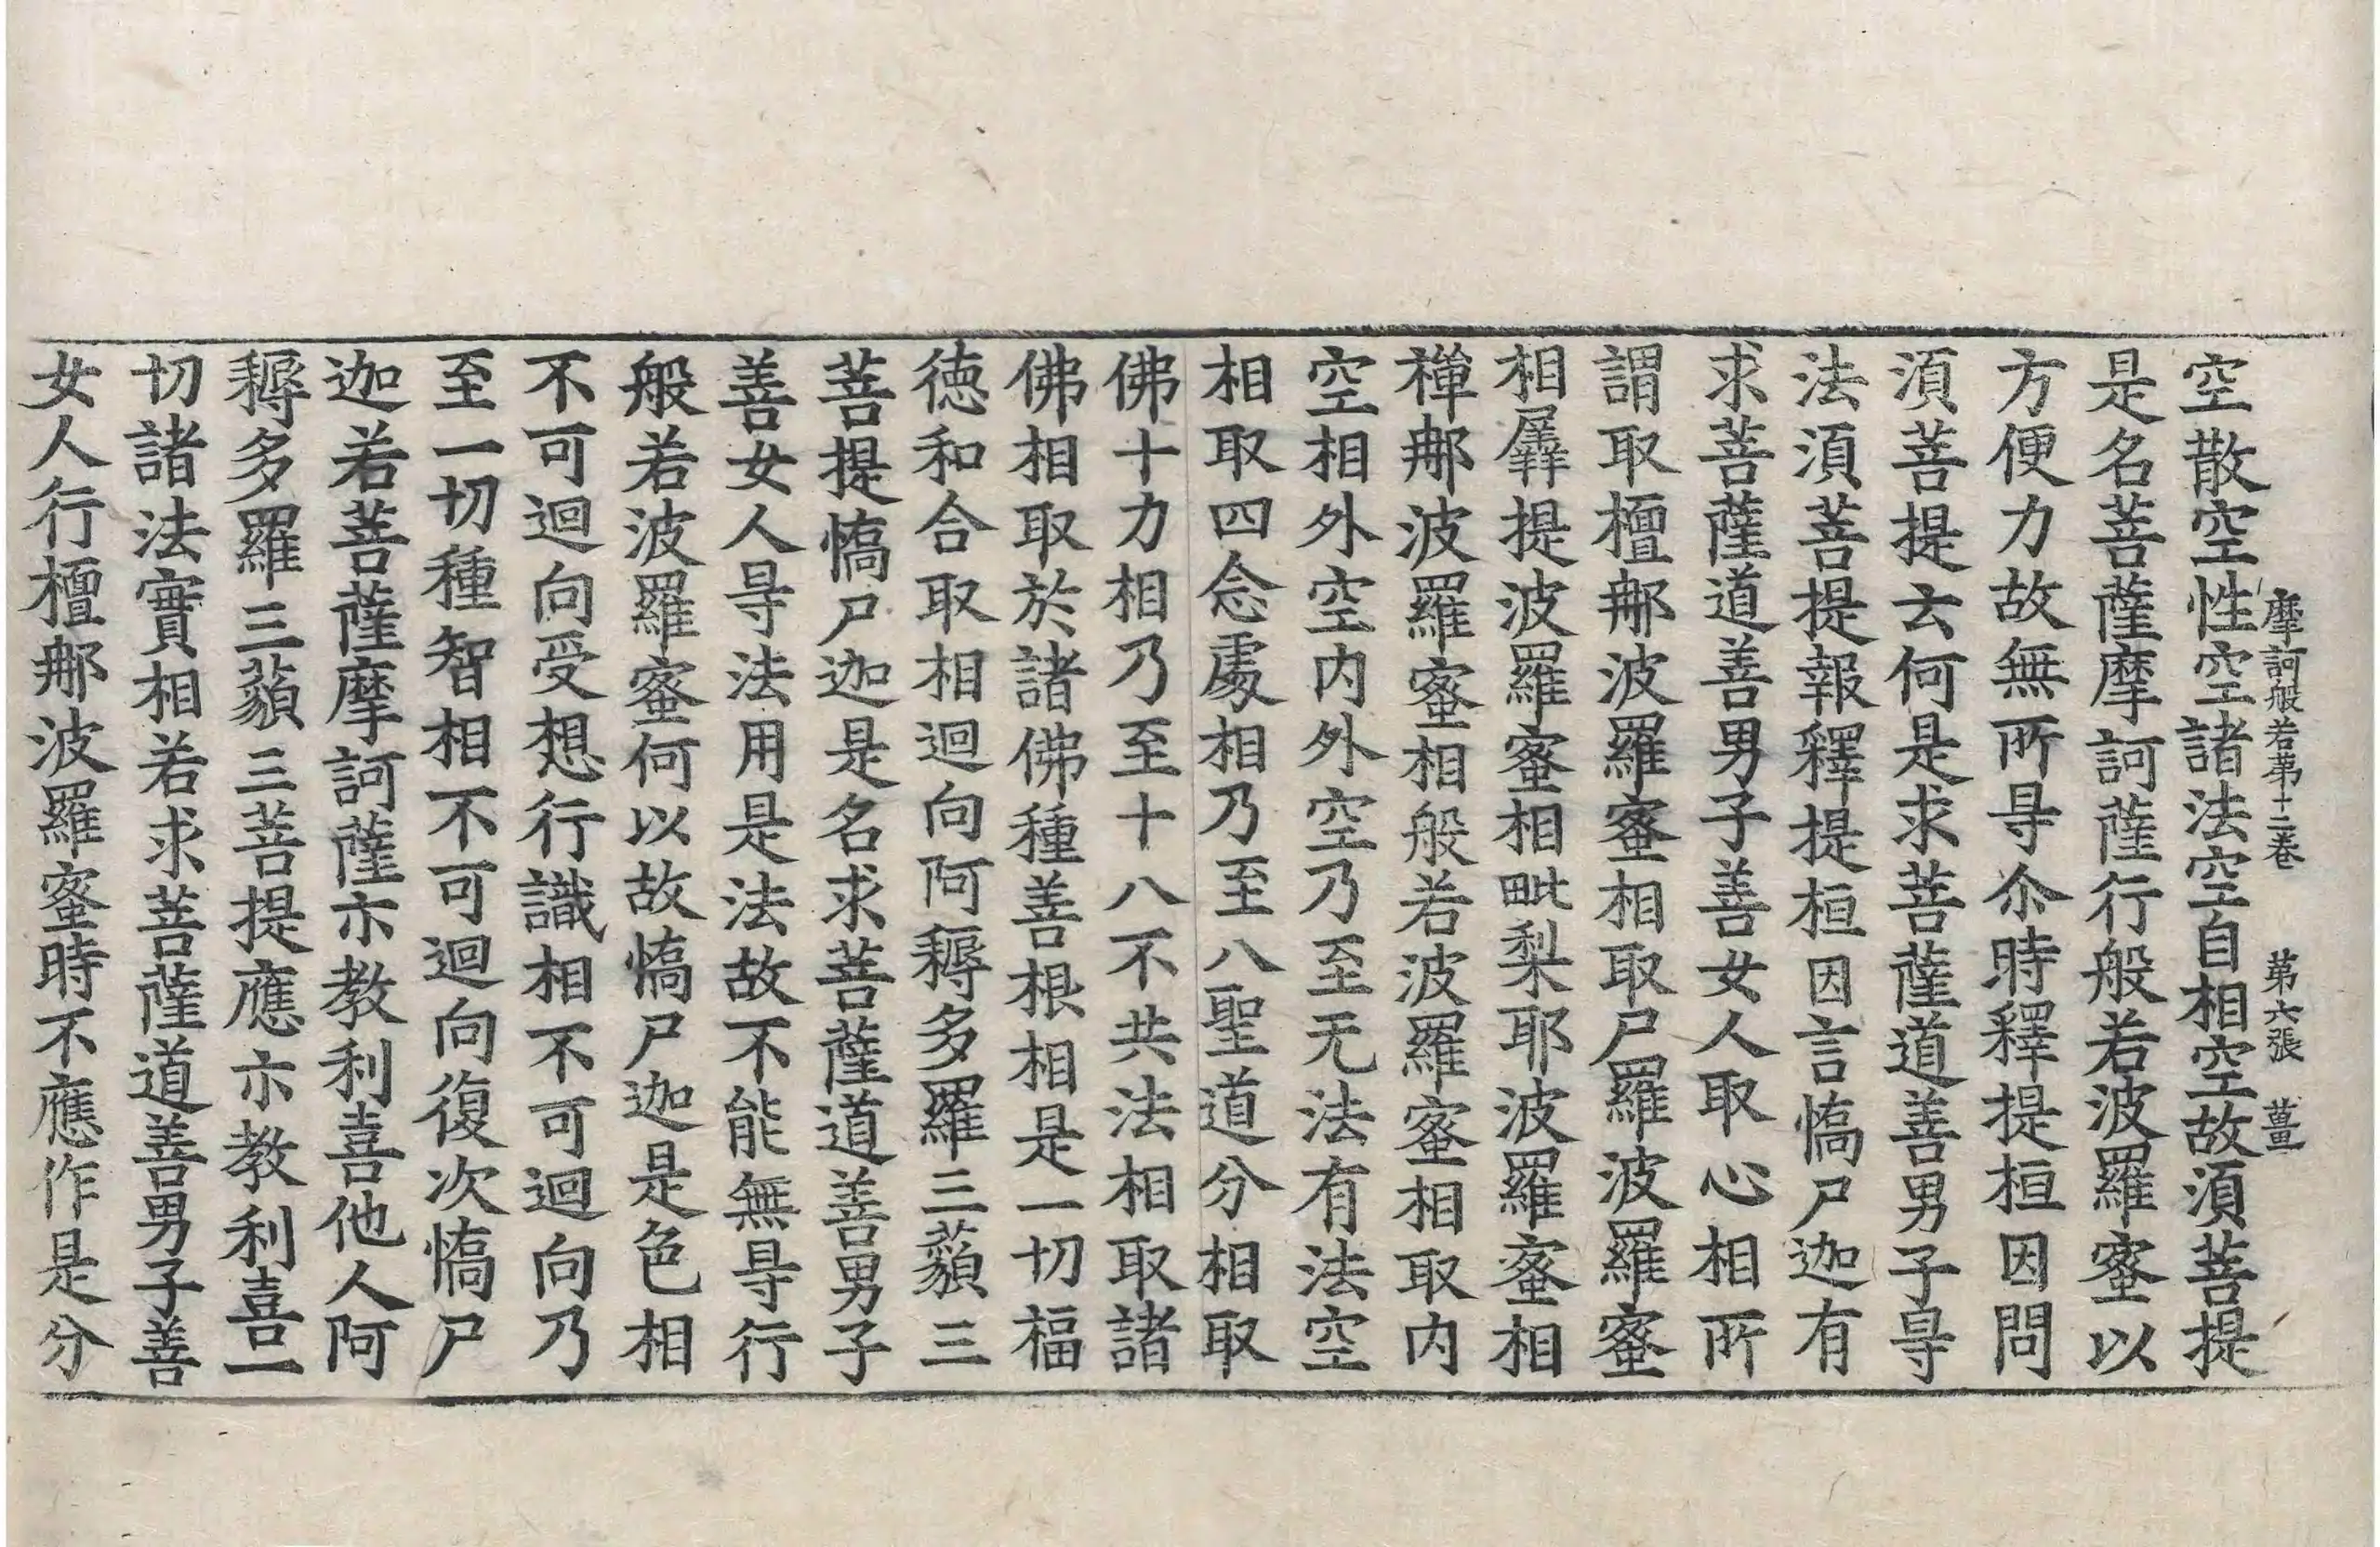 摩訶般若第十二卷　第六張　薑
空散空性空諸法空自相空故須菩提
是名菩薩摩訶薩行般若波羅蜜以
方便力故無所㝵尒時釋提桓因問
須菩提云何是求菩薩道善男子㝵
法須菩提報釋提桓因言憍尸迦有
求菩薩道善男子善女人取心相所
謂取檀那波羅蜜相取尸羅波羅蜜
相羼提波羅蜜相毗梨耶波羅蜜相
禪那波羅蜜相般若波羅蜜相取内
空相外空内外空乃至无法有法空
相取四念處相乃至八聖道分相取
佛十力相乃至十八不共法相取諸
佛相取於諸佛種善根相是一切福
徳和合取相迴向阿耨多羅三藐三
菩提憍尸迦是名求菩薩道善男子
善女人㝵法用是法故不能無㝵行
般若波羅蜜何以故憍尸迦是色相
不可迴向受想行識相不可迴向乃
至一切種智相不可迴向復次憍尸
迦若菩薩摩訶薩亦教利喜他人阿
耨多羅三藐三菩提應亦教利喜一
切諸法實相若求菩薩道善男子善
女人行檀那波羅蜜時不應作是分